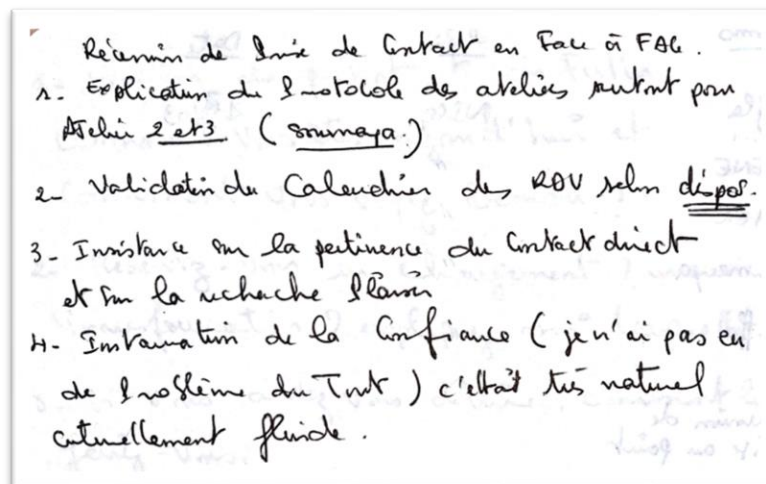 Réunion de Prise de Contact en Face à FAce.
1- Explication du Protocole des ateliers surtout pour
Atelier 2 et 3 (Soumaya.)
2- Validation du Calendrier des RDV selon dispos.
3- Insistance sur la pertinence du Contact direct
et sur la recherche Plaisir
4- Instauration de la Confiance (je n'ai pas eu
de Problème du Tout) c'ettait très naturel
cuturellement fluide.